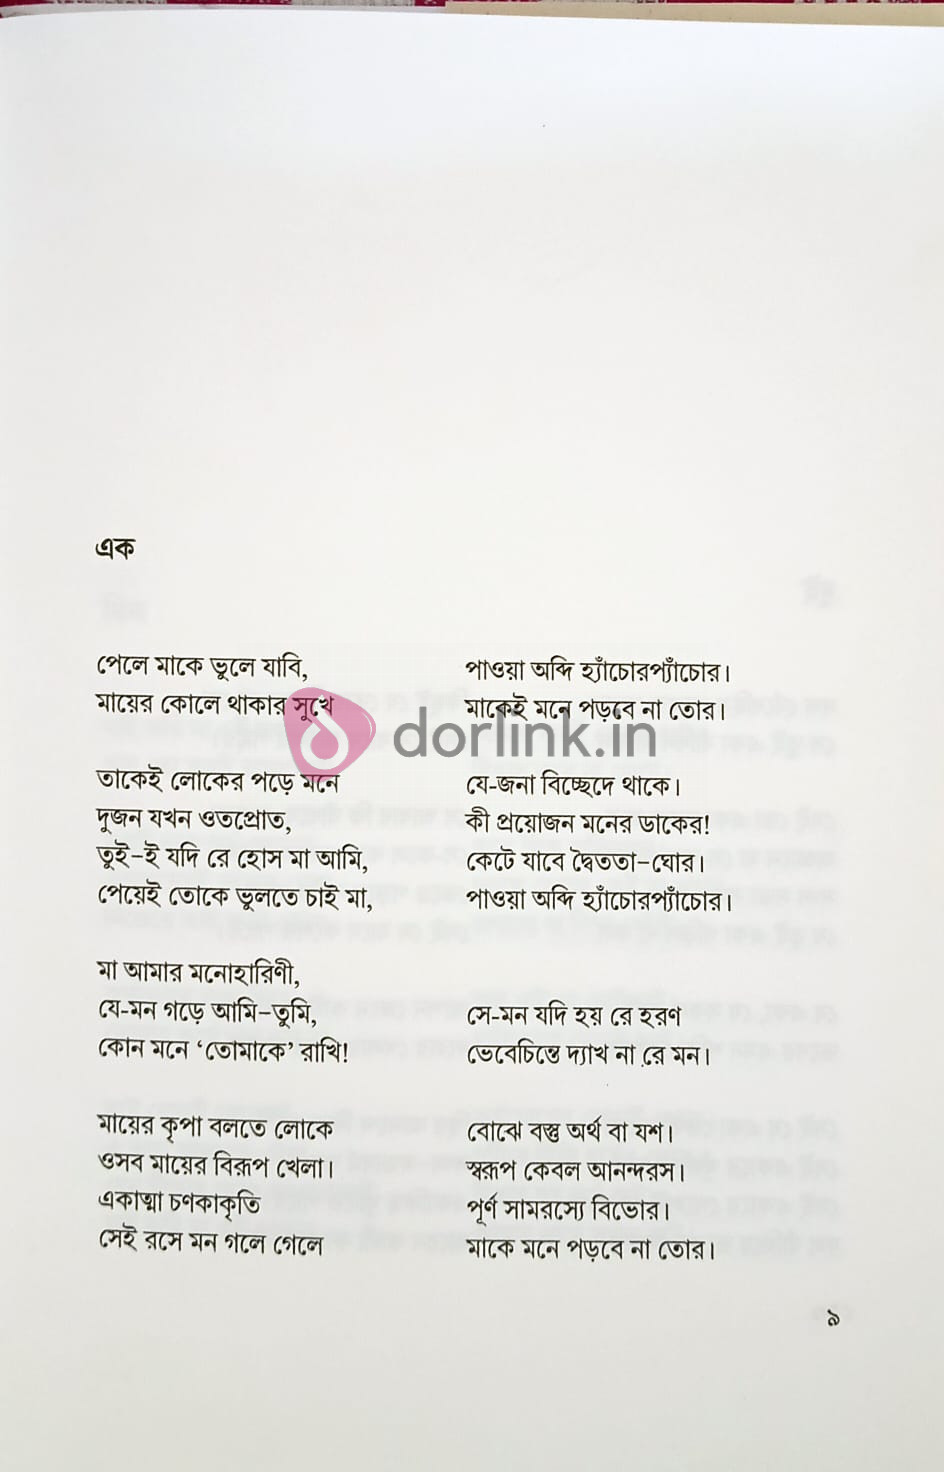 এক
পেলে মাকে ভুলে যাবি, পাওয়া অব্দি হ্যাঁচোরপ্যাঁচোর।
মায়ের কোলে থাকার সুখে মাকেই মনে পড়বে না তোর।
dorlink.in
তাকেই লোকের পড়ে মনে যে-জনা বিচ্ছেদে থাকে।
দুজন যখন ওতপ্রোত, কী প্রয়োজন মনের ডাকের!
তুই-ই যদি রে হোস মা আমি, কেটে যাবে দ্বৈততা-ঘোর।
পেয়েই তোকে ভুলতে চাই মা, পাওয়া অব্দি হ্যাঁচোরপ্যাঁচোর।
মা আমার মনোহারিণী,
যে-মন গড়ে আমি-তুমি, সে-মন যদি হয় রে হরণ
কোন মনে ‘তোমাকে’ রাখি! ভেবেচিন্তে দ্যাখ না রে মন।
মায়ের কৃপা বলতে লোকে বোঝে বস্তু অর্থ বা যশ।
ওসব মায়ের বিরূপ খেলা। স্বরূপ কেবল আনন্দরস।
একাত্মা চণকাকৃতি পূর্ণ সামরস্যে বিভোর।
সেই রসে মন গলে গেলে মাকে মনে পড়বে না তোর।
৯